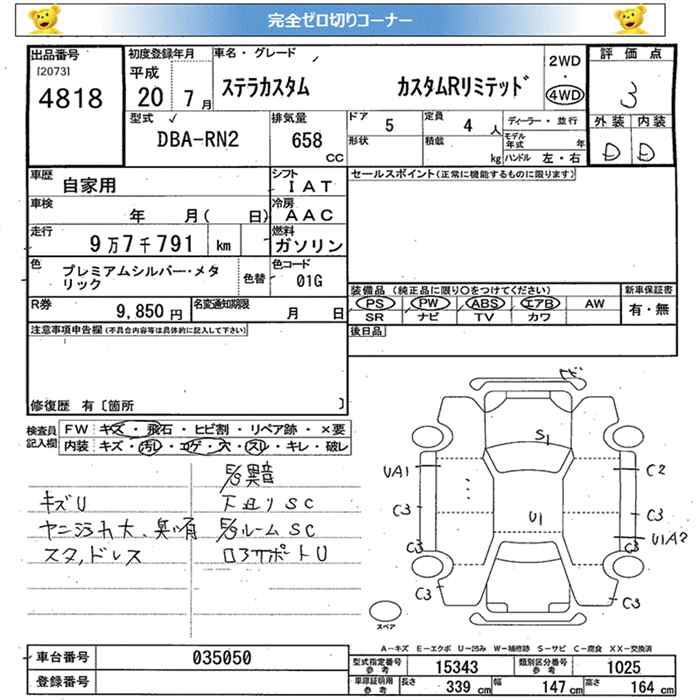 完全ゼロ切りコーナー
出品番号
[2073]
4818
初度登録年月
平成
20 7月
車名・グレード
ステラカスタム カスタムRリミテッド
2WD
・
4WD
評価点
3
外装 内装
D D
型式
DBA-RN2
排気量
658
CC
ドア 5
定員 4 人
形状
積載 kg
ディーラー・並行
モデル年式 年
ハンドル 左・右
車歴
自家用
シフト
IAT
車検
年 月( 日)
冷房
AAC
走行
9万7千791 km
燃料
ガソリン
色
プレミアムシルバー・メタリック
色替
色コード
01G
R券
9,850 円
名変通知期限
月 日
セールスポイント(正常に機能するものに限ります)
装備品(純正品に限り○をつけてください)
新車保証書
PS PW ABS エアB AW
有・無
SR ナビ TV カワ
後日品
注意事項申告欄(不具合内容等は具体的に記入して下さい)
修復歴 有〔箇所 〕
検査員記入欄
FW キズ・飛石・ヒビ割・リペア跡・×要
内装 キズ・汚レ・コゲ・穴・スレ・キレ・破レ
キズU
下廻りSC
ルームSC
スタ,ドレス
トビ
S1
UA1
C2
C3
C3
U1
U1A2
C3
C3
C3
C3
スペア
A-キズ E-エクボ U-凹み W-補修跡 S-サビ C-腐食 XX-交換済
車台番号
035050
登録番号
型式指定番号
参考
15343
類別区分番号
参考
1025
車庫証明用
参考
長さ 339 cm
幅 147 cm
高さ 164 cm